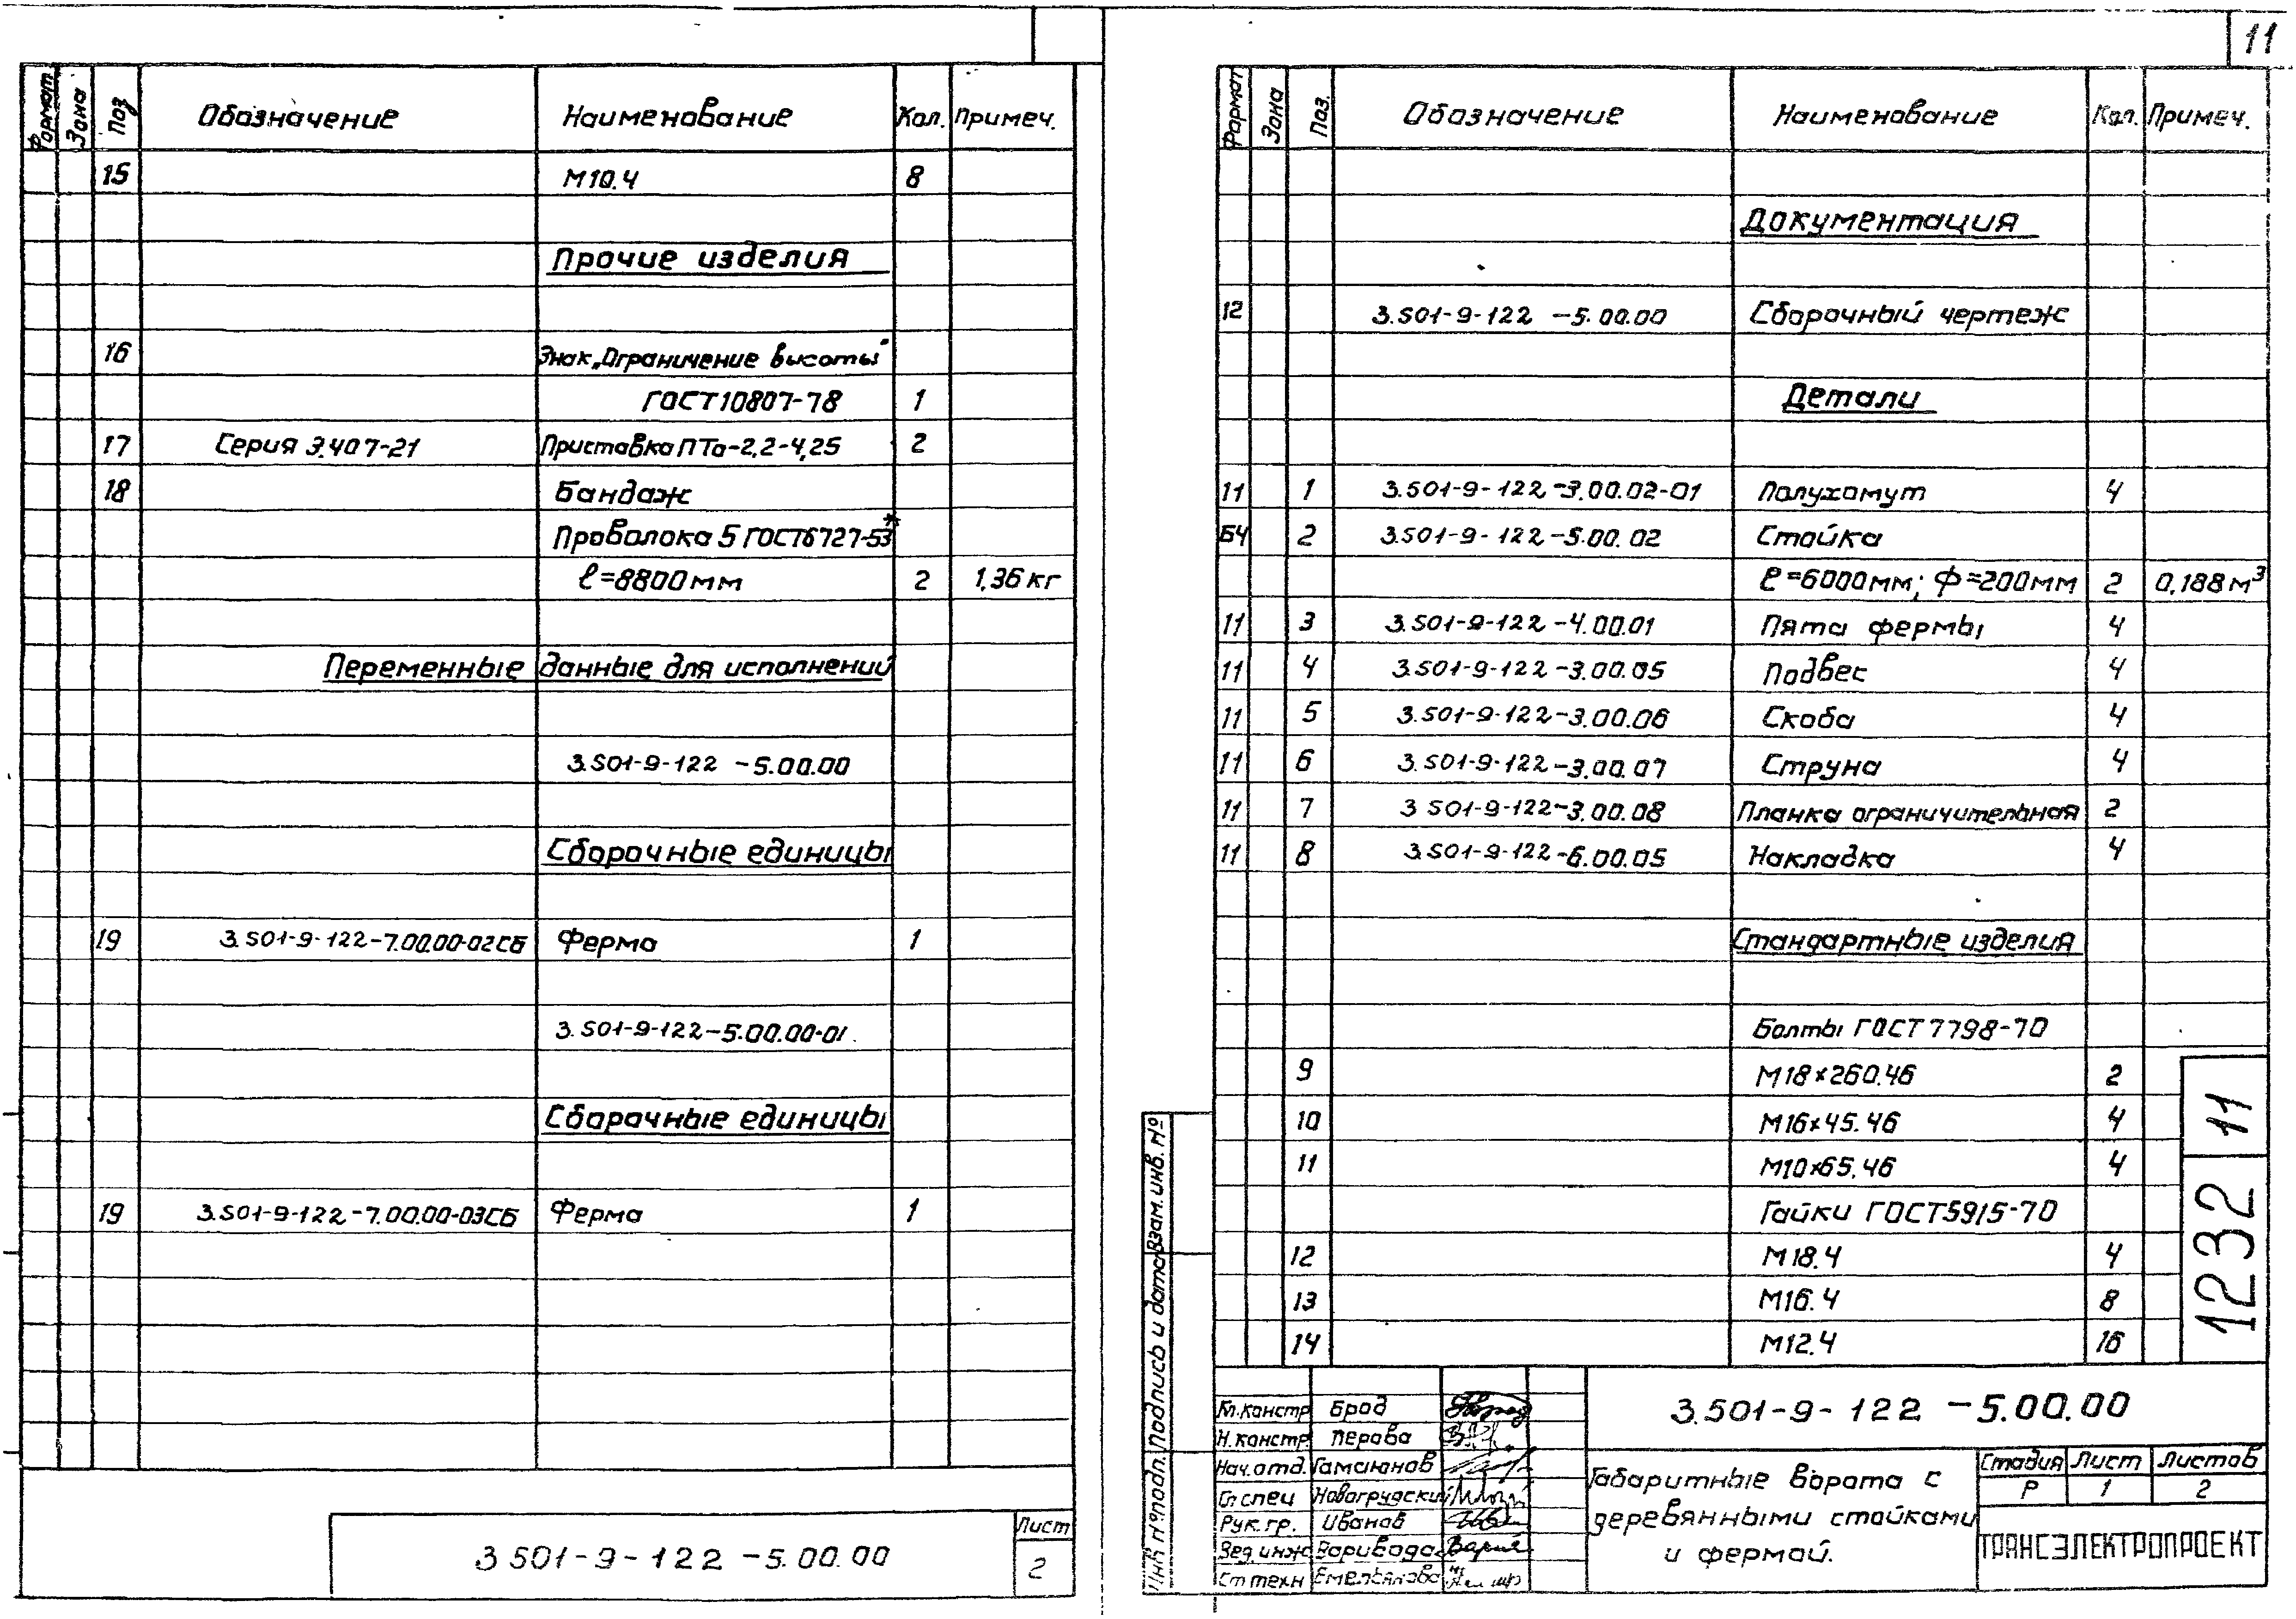 Формат Зона Поз Обозначение Наименование Кол. Примеч.
15 М10.4 8
Прочие изделия
16 Знак „Ограничение высоты"
ГОСТ10807-78 1
17 Серия 3.407-21 Приставка ПТа-2,2-4,25 2
18 Бандаж
Проволока 5 ГОСТ6727-53*
ℓ=8800мм 2 1,36 кг
Переменные данные для исполнений
3.501-9-122 -5.00.00
Сборочные единицы
19 3.501-9-122-7.00.00-02СБ Ферма 1
3.501-9-122-5.00.00-01
Сборочные единицы
19 3.501-9-122-7.00.00-03СБ Ферма 1
3 501-9-122 -5.00.00
Лист
2
11
Формат Зона Поз. Обозначение Наименование Кол. Примеч.
Документация
12 3.501-9-122 -5.00.00 Сборочный чертеж
Детали
11 1 3.501-9-122-3.00.02-01 Полухомут 4
БЧ 2 3.501-9-122-5.00.02 Стойка
ℓ=6000мм; Ф=200мм 2 0,188м³
11 3 3.501-9-122-4.00.01 Пята фермы 4
11 4 3.501-9-122-3.00.05 Подвес 4
11 5 3.501-9-122-3.00.06 Скоба 4
11 6 3.501-9-122-3.00.07 Струна 4
11 7 3 501-9-122-3.00.08 Планка ограничительная 2
11 8 3.501-9-122-6.00.05 Накладка 4
Стандартные изделия
Болты ГОСТ7798-70
9 М18×260.46 2
10 М16×45.46 4
11 М10×65.46 4
Гайки ГОСТ5915-70
12 М18.4 4
13 М16.4 8
14 М12.4 16
1232 11
Инв № подл. Подпись и дата Взам. инв. №
Гл.констр Брод
Н.констр. Перова
Нач.отд.
Гл спец Новогрудский
Рук.гр. Иванов
Вед.инж Варивода
Ст техн
3.501-9-122 -5.00.00
Габаритные ворота с
деревянными стойками
и фермой.
Стадия Лист Листов
Р 1 2
ТРАНСЭЛЕКТРОПРОЕКТ